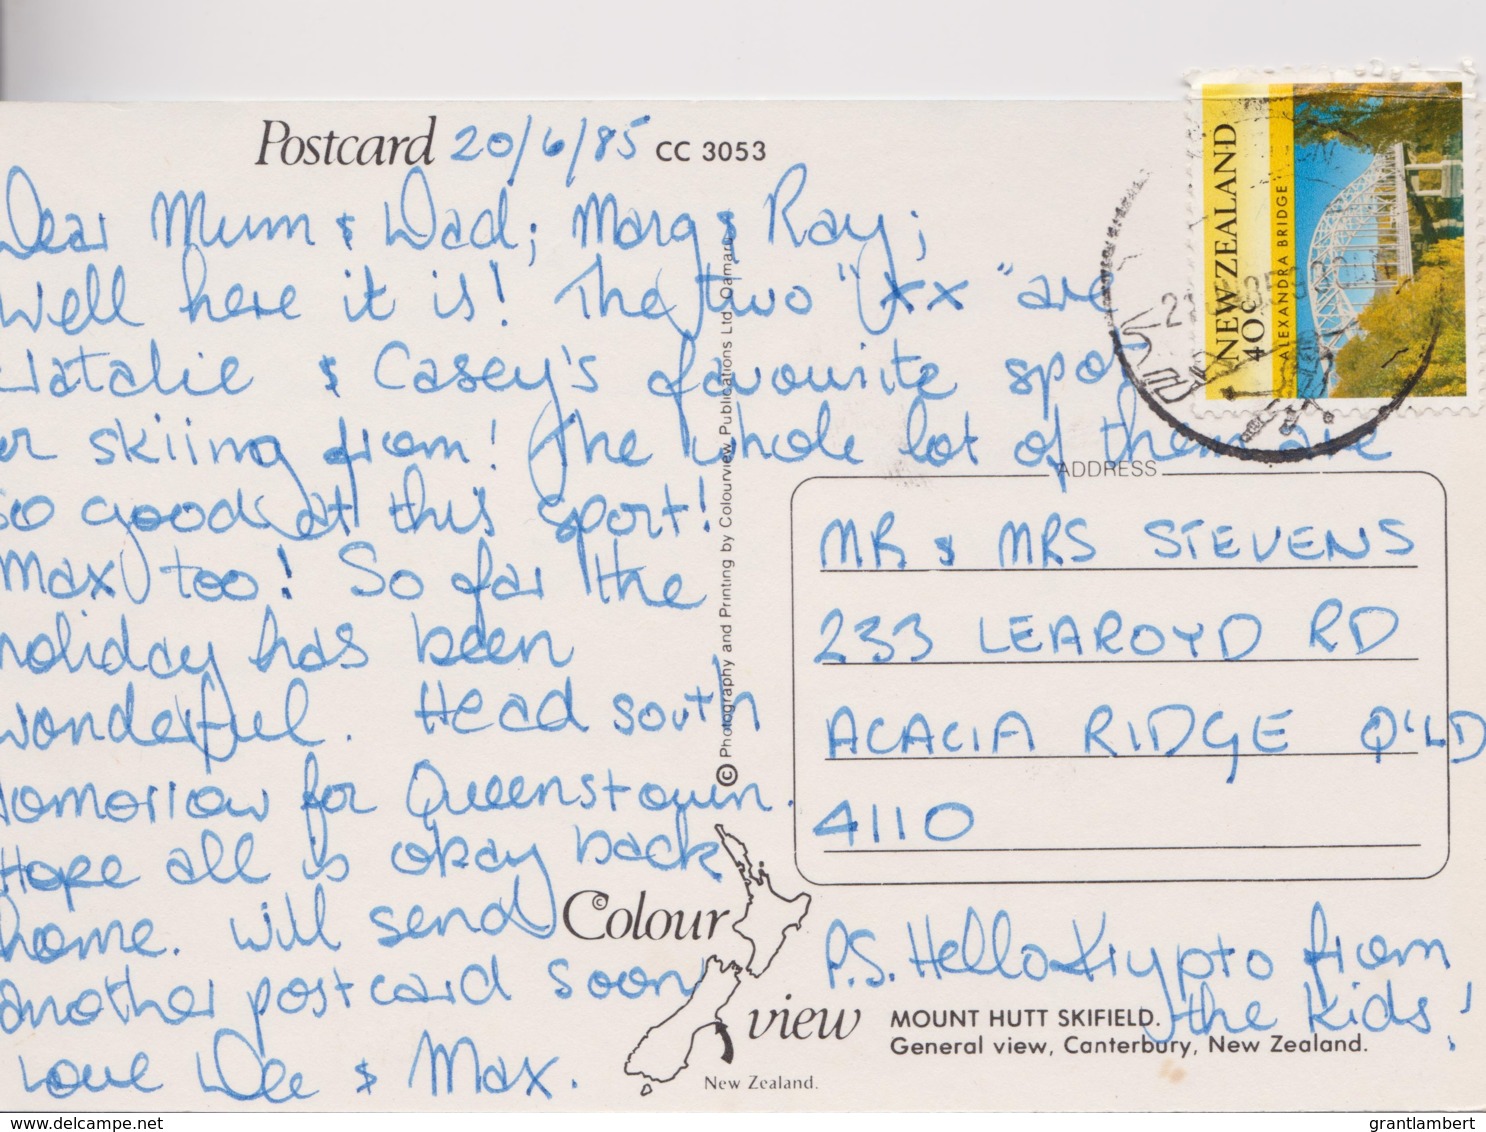 Postcard 20/6/85 CC 3053
Dear Mum & Dad; Marg & Ray;
Well here it is! The two "xx" are
Natalie & Casey's favourite spot
er skiing from! The whole lot of them are
so good at this sport!
Max too! So far the
holiday has been
wonderful. Head south
tomorrow for Queenstown.
Hope all is okay back
home. Will send
another postcard soon
Love Dee & Max.
© Photography and Printing by Colourview Publications Ltd. Oamaru
NEW ZEALAND
40c
ALEXANDRA BRIDGE
ADDRESS
MR & MRS STEVENS
233 LEAROYD RD
ACACIA RIDGE Q'LD
4110
© Colour
view
New Zealand.
P.S. Hello Krypto from
the kids!
MOUNT HUTT SKIFIELD.
General view, Canterbury, New Zealand.
delcampe.net
grantlambert